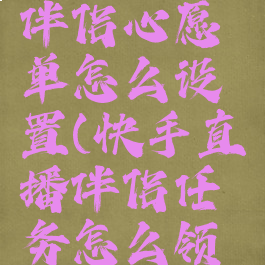 伴侣心愿
单怎么设
置(快手直
播伴侣任
务怎么领